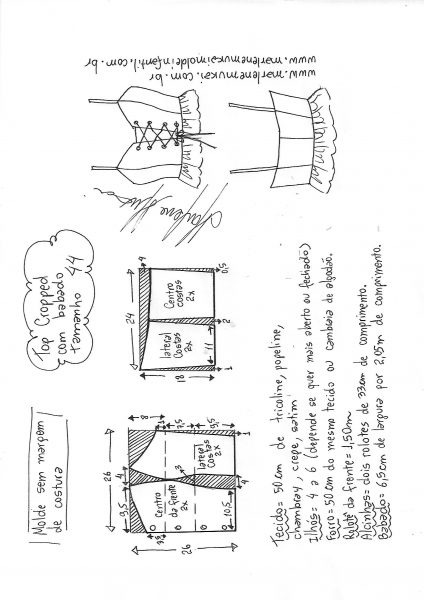 www.marlenemukai.com.br
www.marlenemukaimoldeinfantil.com.br
Top Cropped
com babado
tamanho 44
Molde sem margem
de costura
24
4
18
lateral
costas
2x
Centro
costas
2x
11
1
2
0,5
26
9,5
4
8
1
3,5
7,5
9,5
3
Centro
da frente
2x
lateral
costas
2x
10,5
4
1
26
Tecido = 50 cm de tricoline, popeline,
chambray, crepe, cetim
Ilhós = 4 a 6 (depende se quer mais aberto ou fechado)
Forro = 50 cm do mesmo tecido ou cambraia de algodão.
Rolotê da frente = 1,50m
Alcinhas = dois rolotes de 33cm de comprimento.
Babado = 6,5cm de largura por 2,05m de comprimento.